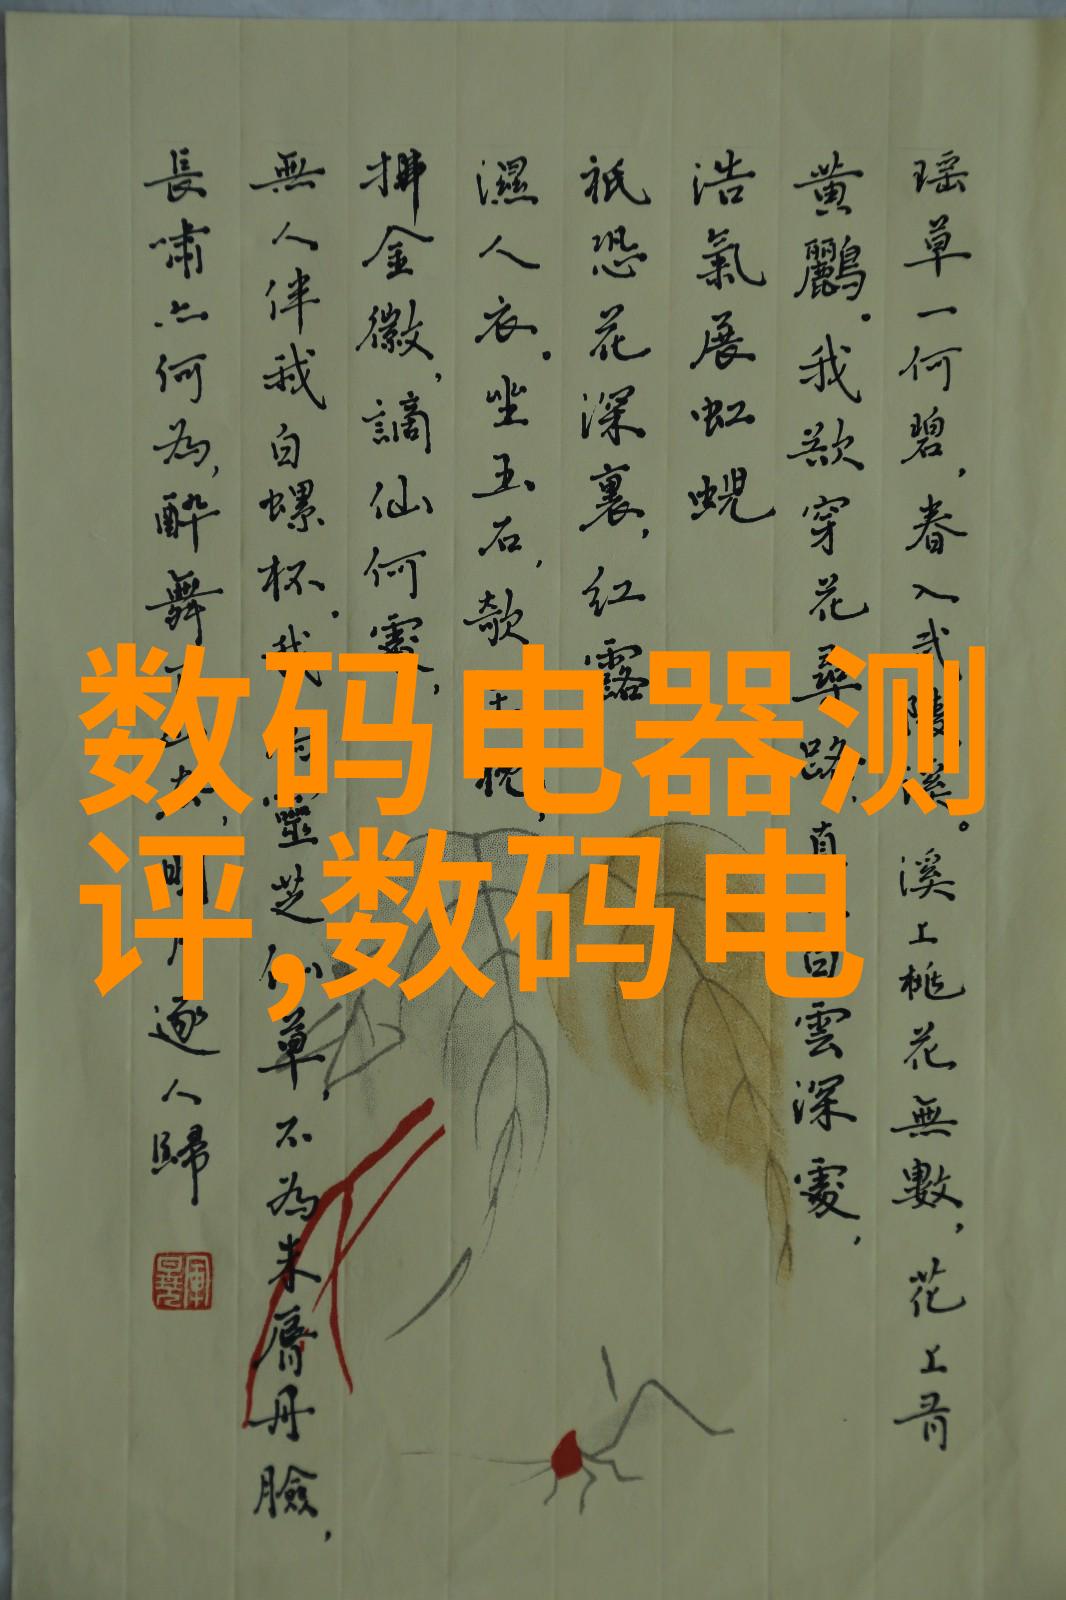 瑶草一何碧，春入武陵溪。溪上桃花無數，花上有
黄鸝。我欲穿花尋路，直白雲深處，
浩氣展虹蜺
祇恐花深裏，紅露
濕人衣。坐玉石，欹枕，
拂金徽，謫仙何處，
無人伴我白螺杯。我靈芝仙草，不為朱唇丹臉，
長嘯亦何為，醉舞，明月逐人歸
数码电器测
评,数码电